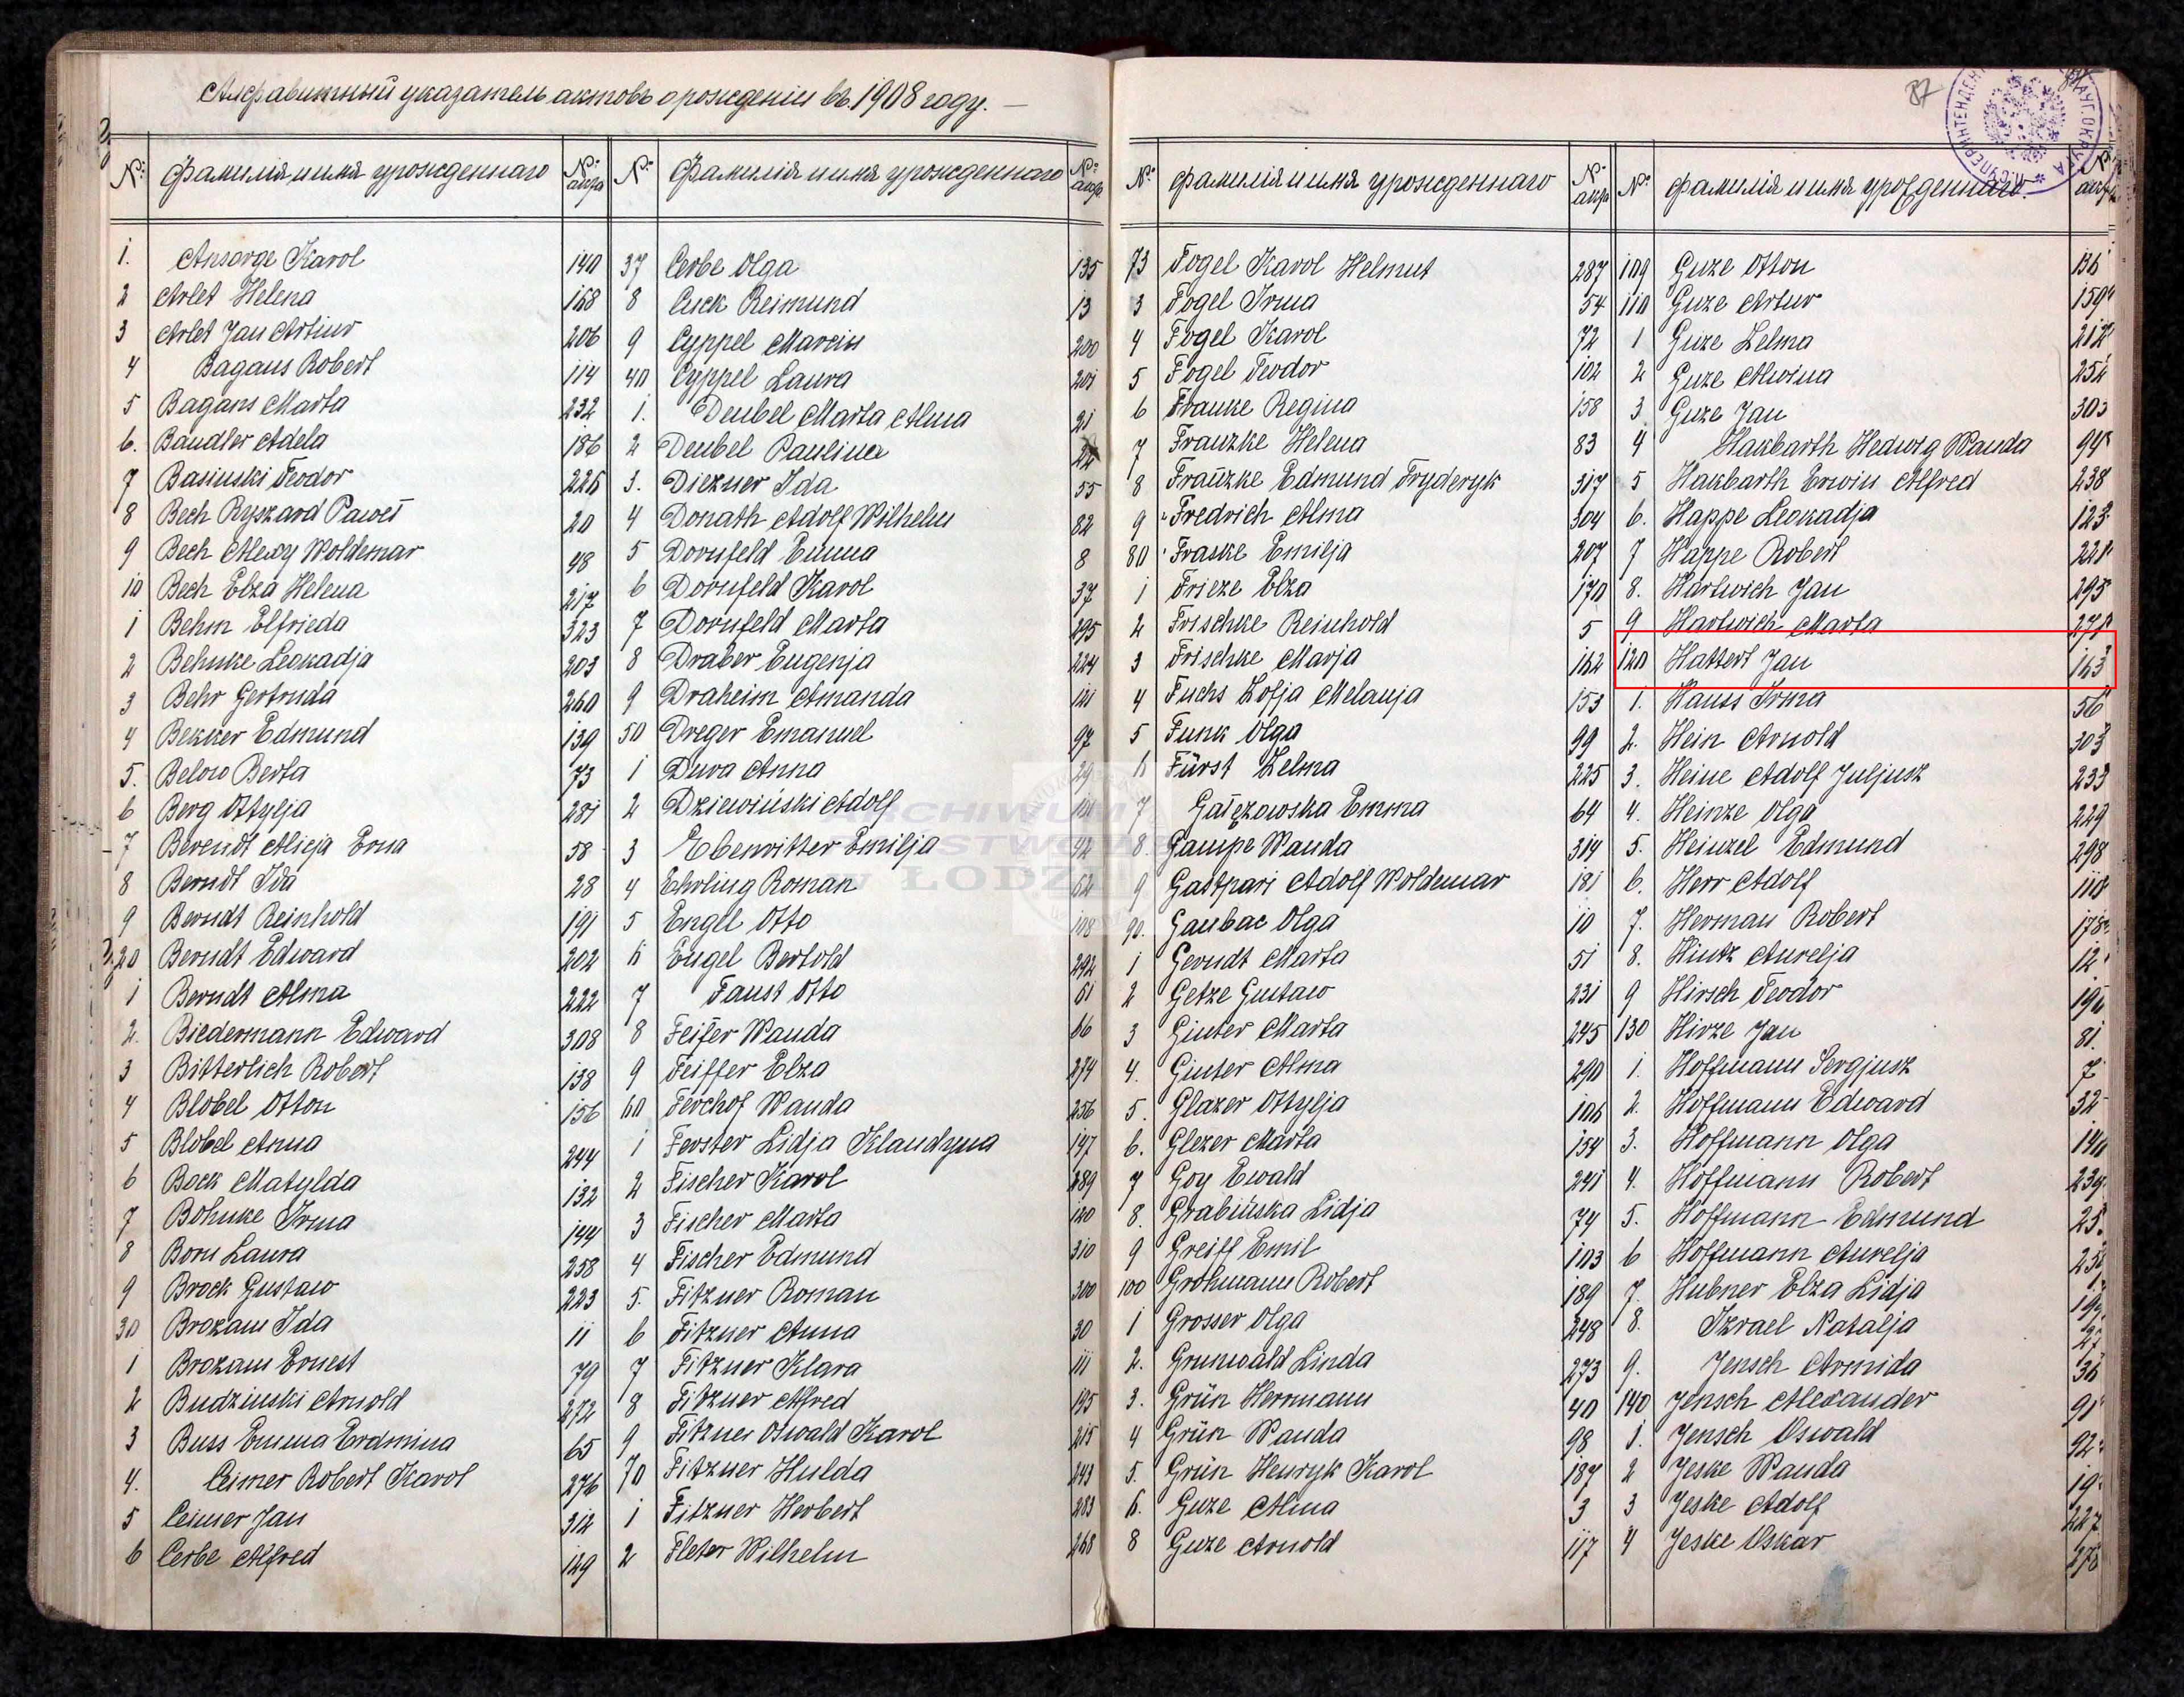 Алфавитный указатель актовъ о рожденіи въ 1908 году. —
№ Фамилія и имя урожденнаго № акта
1. Ansorge Karol 140
2 Arlet Helena 168
3 Arlet Jan Artur 206
4 Bagans Robert 114
5 Bagans Marta 232
6. Bandler Adela 186
7 Basinski Teodor 226
8 Bech Ryszard Paweł 20
9 Bech Alexy Woldemar 48
10 Bech Elza Helena 217
1 Behm Elfrieda 323
2 Behnke Leokadja 203
3 Behr Gertruda 260
4 Bekker Edmund 139
5. Below Berta 73
6 Berg Ottylja 281
7 Berendt Alicja Erna 58
8 Berndt Ida 28
9 Berndt Reinhold 191
20 Berndt Edward 202
1 Berndt Alma 222
2. Biedermann Edward 308
3 Bitterlich Robert 138
4 Blobel Otton 156
5 Blobel Anna 244
6 Bock Matylda 132
7 Bohnke Irma 144
8 Born Laura 258
9 Brock Gustaw 223
30 Brokam Ida 11
1 Brokam Ernest 79
2 Budzinski Arnold 272
3 Buss Emma Erdmina 65
4. Ceimer Robert Karol 276
5 Ceimer Jan 312
6 Cerbe Alfred 149
№ Фамилія и имя урожденнаго № акта
37 Cerbe Olga 135
8 Cuck Reimund 13
9 Cyppel Marcin 200
40 Cyppel Laura 201
1. Deubel Marta Alma 21
2 Deubel Paulina
3. Diezner Ida 55
4 Donath Adolf Wilhelm 82
5 Dornfeld Emma 8
6 Dornfeld Karol 37
7 Dornfeld Marta 295
8 Draber Eugenja 224
9 Draheim Amanda 141
50 Dreger Emanuel 97
1 Duva Anna 29
2 Dziewiński Adolf
3 Ebenritter Emilja 42
4 Ehrling Roman 62
5 Engel Otto 108
6 Engel Bertold 292
7 Faust Otto 61
8 Feifer Wanda 66
9 Feiffer Elza 274
60 Ferchof Wanda 256
1 Ferster Lidja Klaudyna 147
2 Fischer Karol 289
3 Fischer Marta 120
4 Fischer Edmund 310
5. Fitzner Roman 300
6 Fitzner Anna 30
7 Fitzner Klara 111
8 Fitzner Alfred 195
9 Fitzner Oswald Karol 215
70 Fitzner Hulda 243
1 Fitzner Herbert 283
2 Fleter Wilhelm 268
87
№ Фамилія и имя урожденнаго № акта
73 Fogel Karol Helmut 287
3 Fogel Irma 54
4 Fogel Karol 72
5 Fogel Teodor 102
6 Franke Regina 158
7 Franzke Helena 83
8 Franzke Edmund Fryderyk 317
9 Fredrich Alma 304
80 Fraske Emilja 207
1 Frieze Elza 170
2 Frischke Reinhold 5
3 Frischke Marja 162
4 Fuchs Zofja Melanja 153
5 Funk Olga 99
6 Fürst Zelma 225
7 Gałęzowska Emma 64
8 Gampe Wanda 314
9 Gastpari Adolf Woldemar 181
90. Gaubac Olga 10
1 Gerndt Marta 51
2 Getze Gustaw 231
3 Ginter Marta 245
4. Ginter Alma 290
5. Glazer Ottylja 106
6. Glezer Marta 154
7 Goy Ewald 241
8. Grabińska Lidja 74
9 Greiff Emil 103
100 Grohmann Robert 189
1 Grosser Olga 248
2. Grunwald Linda 273
3. Grün Hermann 40
4 Grün Wanda 98
5. Grün Henryk Karol 187
6. Guze Alma 3
8 Guze Arnold 117
№ Фамилія и имя урожденнаго № акта
109 Guze Otton 136
110 Guze Artur 159
1 Guze Zelma 212
2 Guze Alwina 252
3 Guze Jan 303
4 Hakbarth Hedwig Wanda 94
5 Hakbarth Erwin Alfred 238
6. Happe Leokadja 123
7 Happe Robert 221
8. Hartwich Jan 293
9 Hartwich Marta 271
120 Hattert Jan 163
1. Hauss Irma 56
2. Hein Arnold 303
3. Heine Adolf Juljusz 233
4. Heinze Olga 229
5. Heinzel Edmund 298
6. Herr Adolf 110
7. Herman Robert 178
8. Hintz Aurelja 12
9 Hirsch Teodor 196
130 Hirze Jan 81
1. Hoffmann Sergjusz 7
2. Hoffmann Edward 32
3. Hoffmann Olga 140
4. Hoffmann Robert 239
5. Hoffmann Edmund 25
6 Hoffmann Aurelja 25
7. Hubner Elza Lidja
8. Izrael Natalja
9. Jensch Armida 36
140 Jensch Alexander 91
1. Jensch Oswald 92
2 Jeske Wanda 19
3 Jeske Adolf 227
4 Jeske Oskar 278
ARCHIWUM
PAŃSTWOWE
W ŁODZI